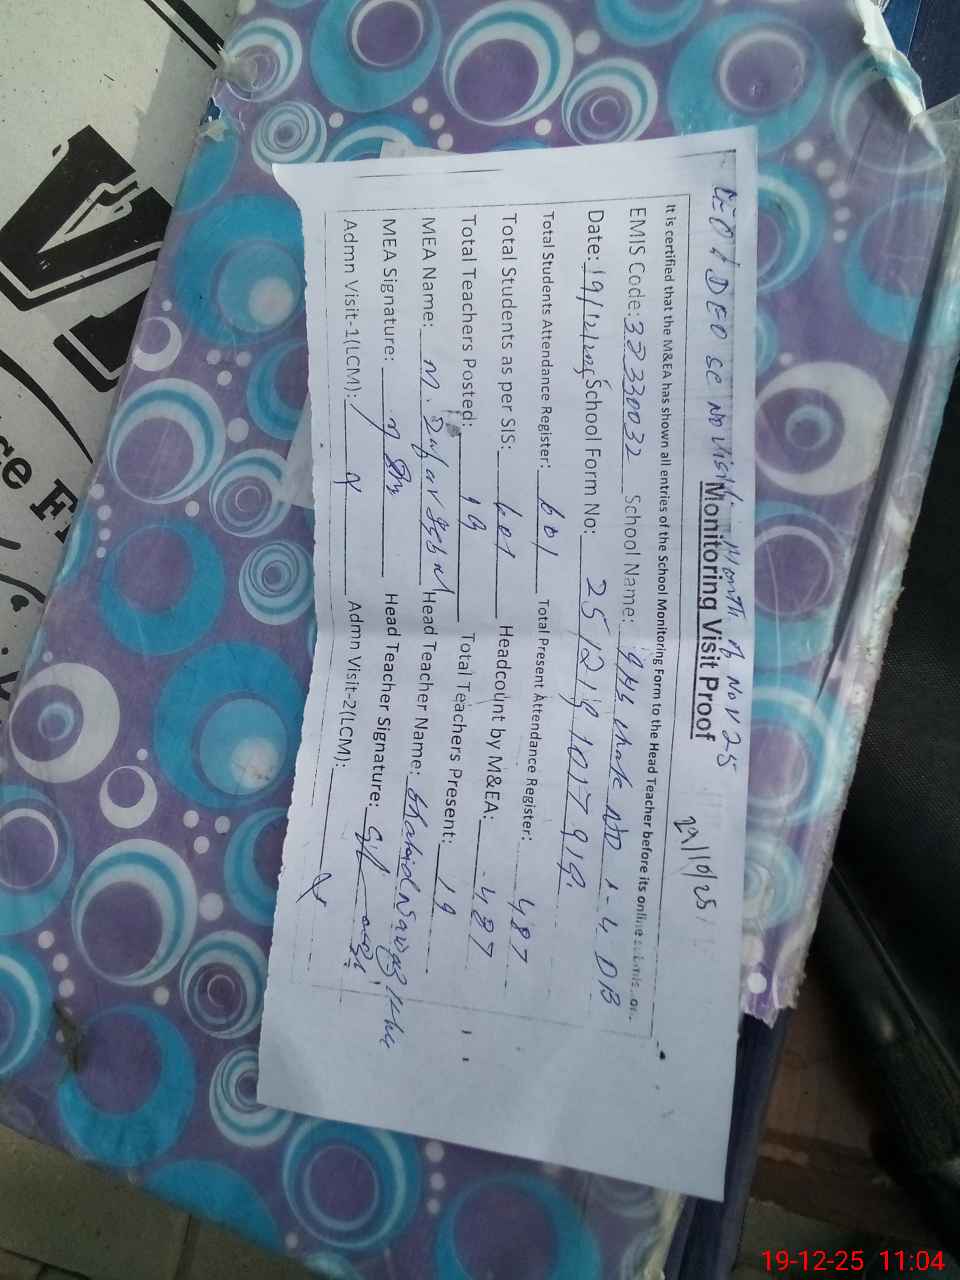 CEO / DEO SE No Visit in Month of Nov 25
Monitoring Visit Proof
It is certified that the M&EA has shown all entries of the School Monitoring Form to the Head Teacher before its online
EMIS Code: 32330032 School Name: GHS Chak No
Date: 19/12/2025 School Form No: 25 12 19 10 17 919
Total Students Attendance Register: 601 Total Present Attendance Register: 487
Total Students as per SIS: 601 Headcount by M&EA: 487
Total Teachers Posted: 19 Total Teachers Present: 19
MEA Name: M. Zafar Iqbal Head Teacher Name: Shahid Nawaz
MEA Signature: Head Teacher Signature:
Admn Visit-1(LCM): Admn Visit-2(LCM):
19-12-25 11:04